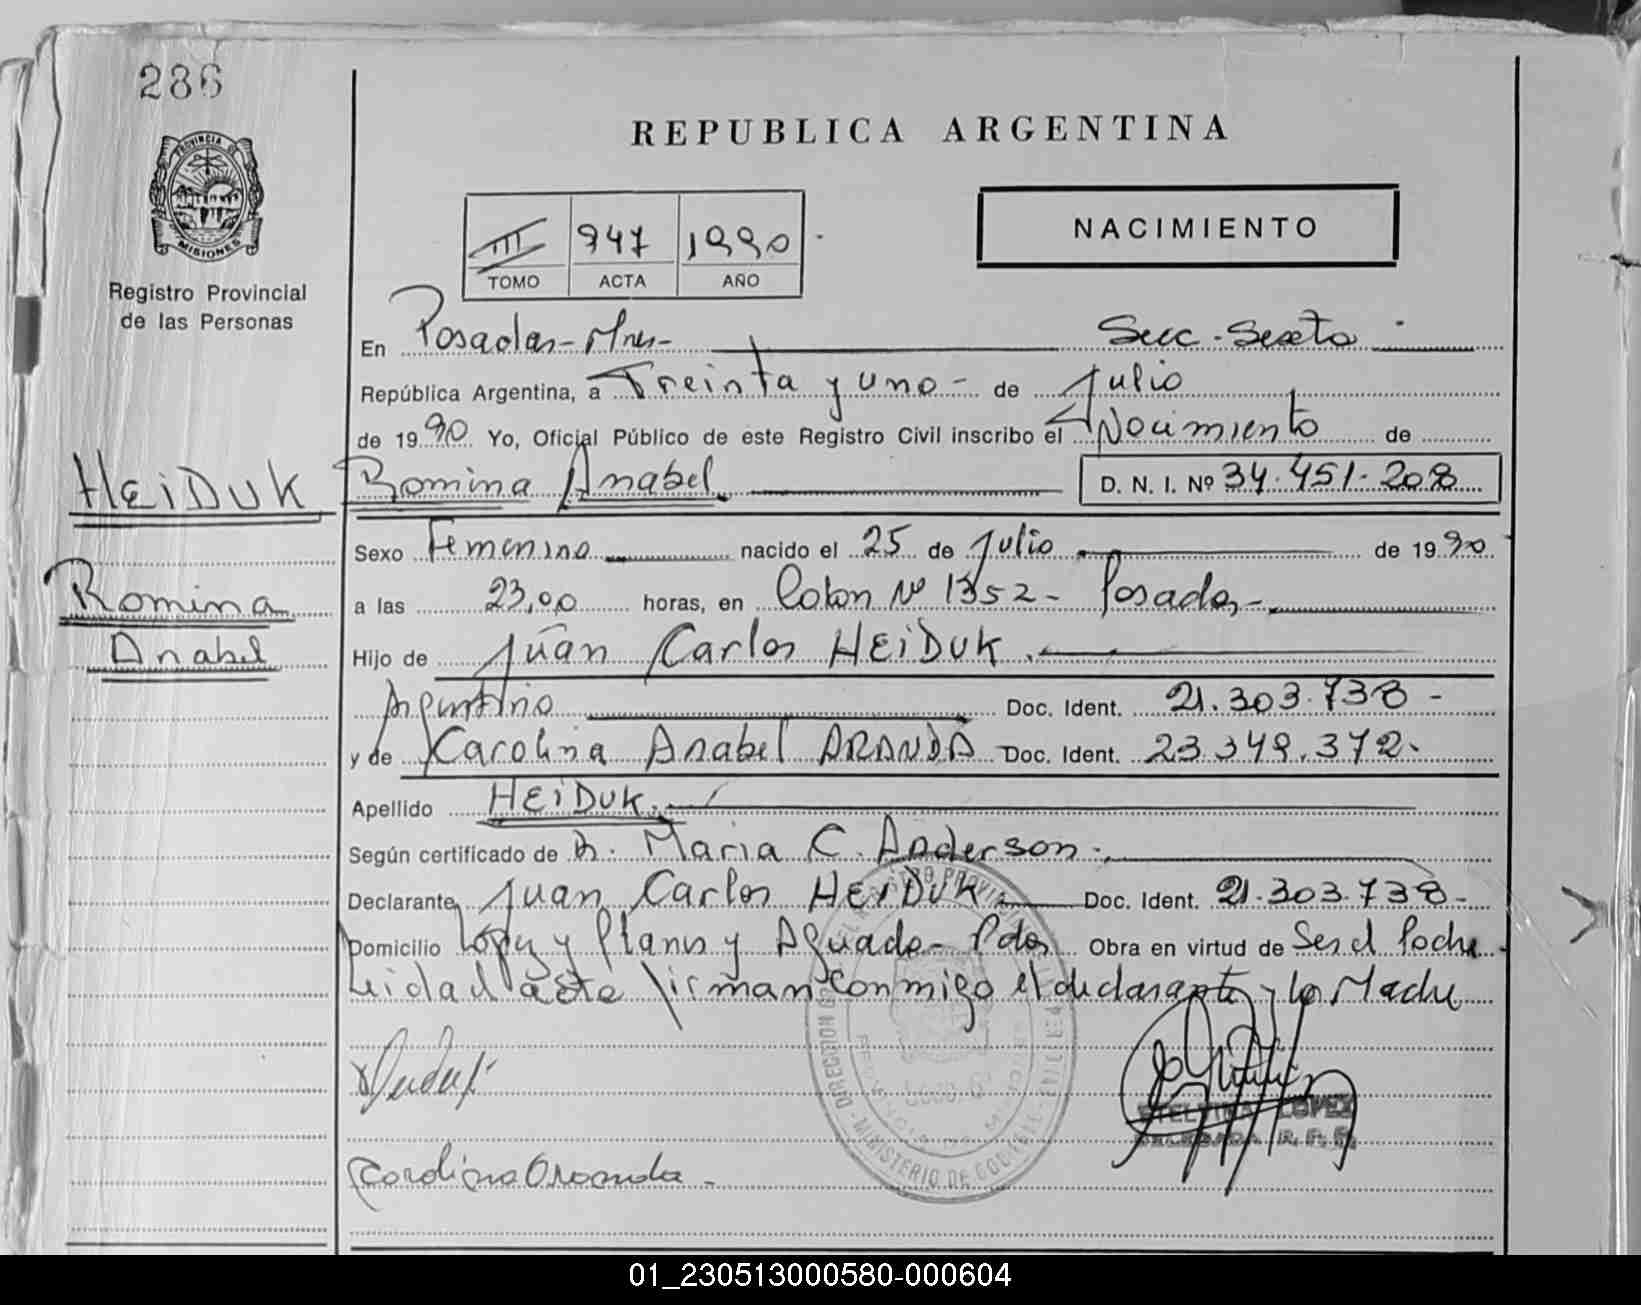 286
PROVINCIA DE
MISIONES
Registro Provincial
de las Personas
HEIDUK
Romina
Anabel
REPUBLICA ARGENTINA
III 947 1990
TOMO ACTA AÑO
NACIMIENTO
En Posadas - Mnes - Secc. Sexta
República Argentina, a Treinta y uno - de Julio
de 1990 Yo, Oficial Público de este Registro Civil inscribo el Nacimiento de
Romina Anabel. D. N. I. Nº 34.451.208
Sexo Femenino nacido el 25 de Julio de 1990
a las 23,00 horas, en Colon Nº 1352 - Posadas -
Hijo de Juan Carlos HEIDUK.
Argentino Doc. Ident. 21.303.738 -
y de Carolina Anabel ARANDA Doc. Ident. 23.349.372.
Apellido HEIDUK.
Según certificado de Maria C. Anderson.
Declarante Juan Carlos HEIDUK Doc. Ident. 21.303.738 -
Domicilio López y Planes y Aguado - Pdas Obra en virtud de Ser el Padre -
Leida el acta firman conmigo el declarante y la Madre
Carolina Aranda -
ETELVINA LOPEZ
DELEGADA R. P. P.
MINISTERIO DE GOBIERNO
01_230513000580-000604